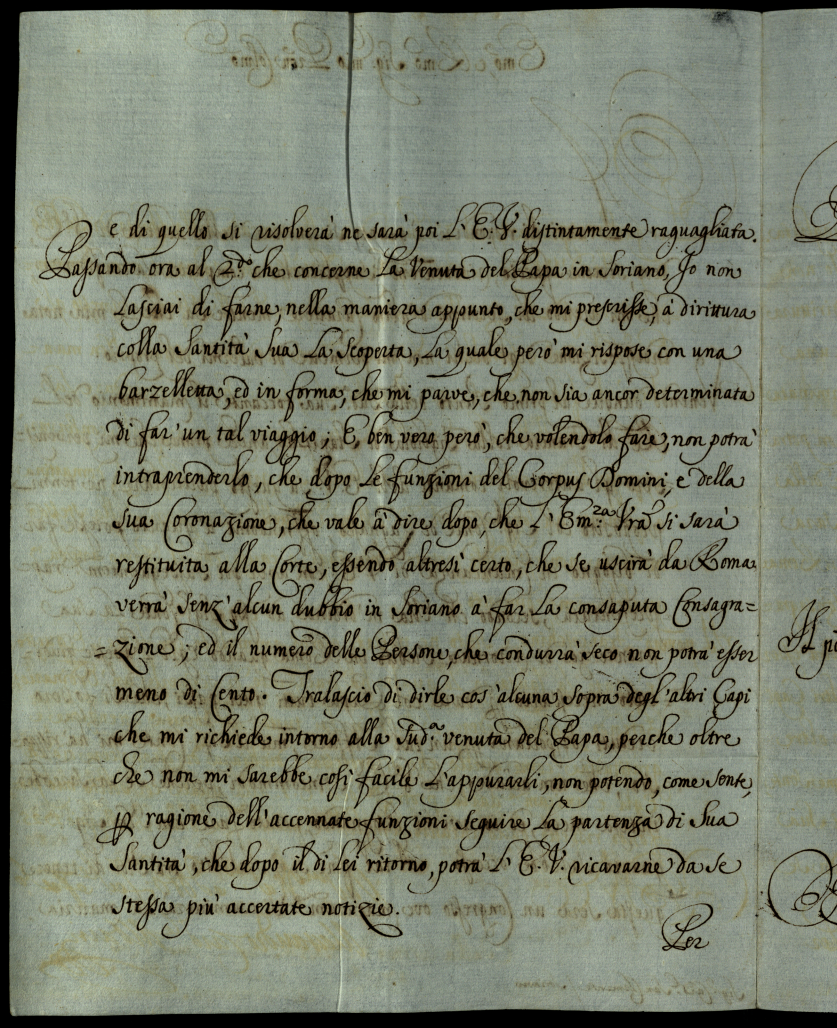 e di quello si risolverà ne sarà poi L'E.V. distintamente raguagliata.
Passando ora al 2.do che concerne La Venuta del Papa in Soriano, Io non
Lasciai di farne, nella maniera appunto, che mi prescrisse, à dirittura
colla Santità Sua La Scoperta, La quale però mi rispose con una
barzelletta, ed in forma, che mi parve, che non sia ancor determinata
di far' un tal viaggio; E, ben vero però, che volendolo fare, non potrà
intraprenderlo, che dopo Le funzioni del Corpus Domini, e della
sua Coronazione, che vale à dire dopo, che L'Em.za Vra si sarà
restituita alla Corte, essendo altresì certo, che se uscirà da Roma
verrà senz'alcun dubbio in Soriano à far La consaputa Consagra=
=zione; ed il numero delle Persone, che condurrà seco non potrà esser
meno di Cento. Tralascio di dirle cos'alcuna sopra degl'altri Capi
che mi richiede intorno alla Sud.a venuta del Papa, perche oltre
che non mi sarebbe così facile L'appurarli, non potendo, come sente,
ꝑ ragione dell'accennate funzioni seguire La partenza di Sua
Santità, che dopo il di Lei ritorno, potrà L'E.V. ricavarne da se
stessa più accertate notizie.
Per